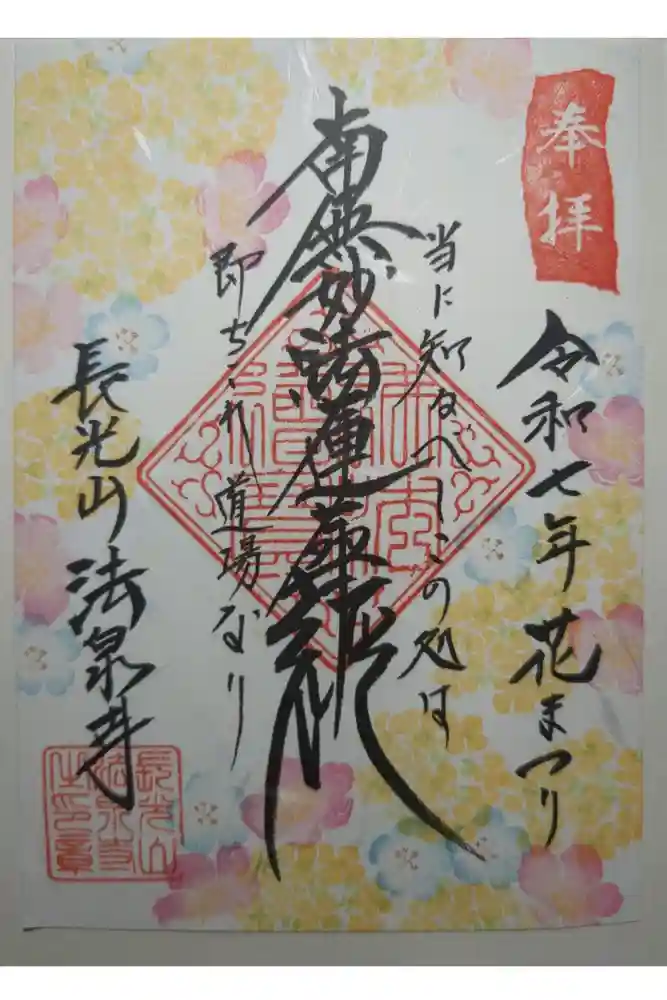 奉拝
令和七年 花まつり
当に知るべしこの処は
南無妙法蓮華経
即ちこれ道場なり
長光山 法泉寺
長光山
法泉寺
之印章